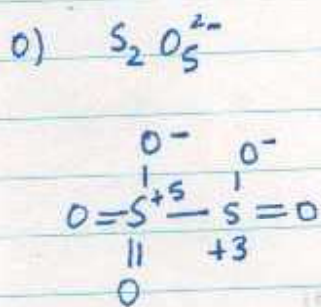 o) S₂O₅²⁻
O⁻ O⁻
O=S⁺⁵—S=O
+3
O